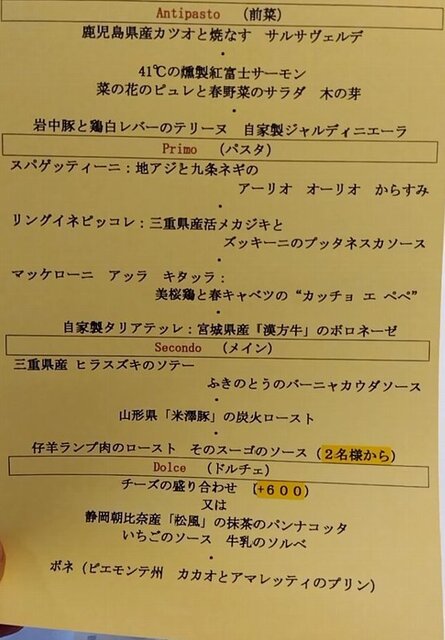 Antipasto （前菜）
鹿児島県産カツオと焼なす　サルサヴェルデ
・
41℃の燻製紅富士サーモン
菜の花のピュレと春野菜のサラダ　木の芽
・
岩中豚と鶏白レバーのテリーヌ　自家製ジャルディニエーラ
Primo （パスタ）
スパゲッティーニ：地アジと九条ネギの
アーリオ　オーリオ　からすみ
・
リングイネピッコレ：三重県産活メカジキと
ズッキーニのプッタネスカソース
・
マッケローニ　アッラ　キタッラ：
美桜鶏と春キャベツの“カッチョ エ ペペ”
・
自家製タリアテッレ：宮城県産『漢方牛』のボロネーゼ
Secondo （メイン）
三重県産 ヒラスズキのソテー
ふきのとうのバーニャカウダソース
・
山形県「米澤豚」の炭火ロースト
・
仔羊ランプ肉のロースト　そのスーゴのソース（２名様から）
Dolce （ドルチェ）
チーズの盛り合わせ　[+６００）
又は
静岡朝比奈産「松風」の抹茶のパンナコッタ
いちごのソース　牛乳のソルベ
・
ボネ（ピエモンテ州　カカオとアマレッティのプリン）